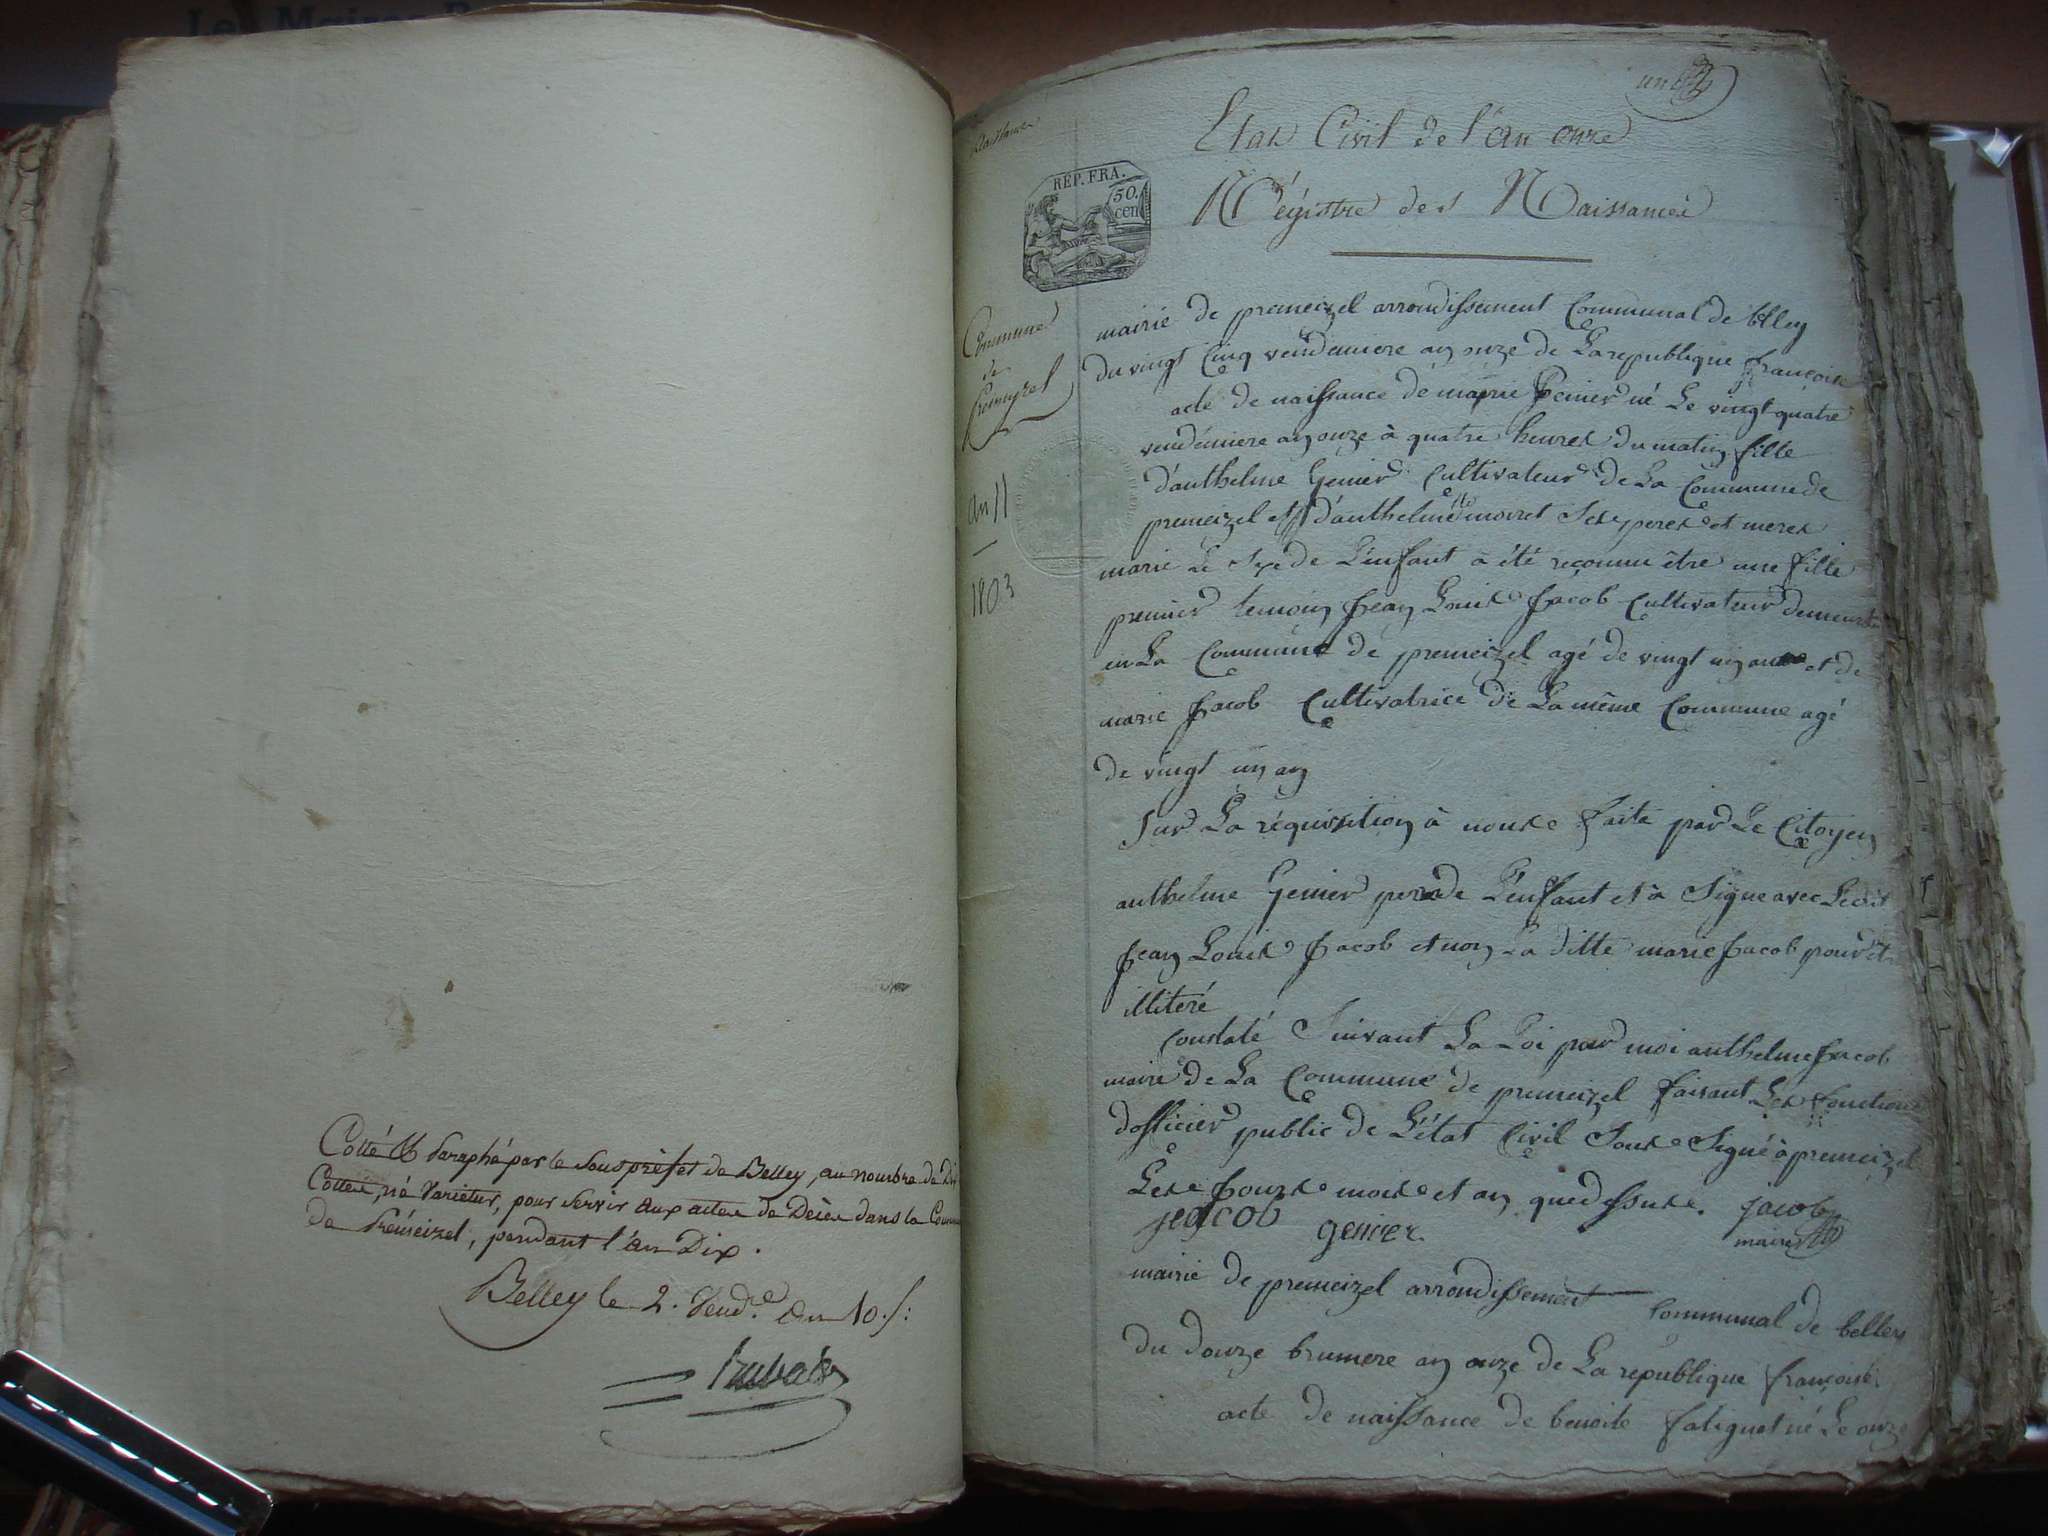 Cotté & Paraphé par le Sous préfet de Belley, au nombre de
Cottes, né varietur, pour servir aux actes de Décès dans la
de Préméizel, pendant l'an Dix.
Belley le 2. Vend.re an 10./:
Naissance
REP. FRA.
50.
cen
Commune
de
Premeyzel
an 11
1803
Etat Civil de l'an onze
Régistre des Naissances
mairie de premeizel arrondissement Communal de belley
du vingt Cinq vendemiere an onze de La republique françoise
acte de naissance de marie Genier né Le vingt quatre
vendémiere an onze à quatre heures du matin fille
d'anthelme Genier Cultivateur de La Commune de
premeizel et d'anthelmette moiret Ses peres et meres
marie Le Sexe de L'enfant a été reconnu être une fille
premier temoin jean Louis jacob Cultivateur
en La Commune de premeizel agé de vingt un ans et de
marie jacob Cultivatrice de La même Commune agé
de vingt un an
Sur La réquisition à nous faite par Le Citoyen
anthelme Genier pere de L'enfant et à Signe avec Ledit
jean Louis jacob et non La ditte marie jacob pour
illiteré
constaté Suivant La Loi par moi anthelme jacob
maire de La Commune de premeizel faisant Les fonctions
dofficier public de L'état Civil Sous Signé à premeizel
Les jours mois et an que dessus. jacob
jacob genier. maire
mairie de premeizel arrondissement Communal de belley
du douze brumere an onze de La republique françoise
acte de naissance de benoite faliquet né Le onze